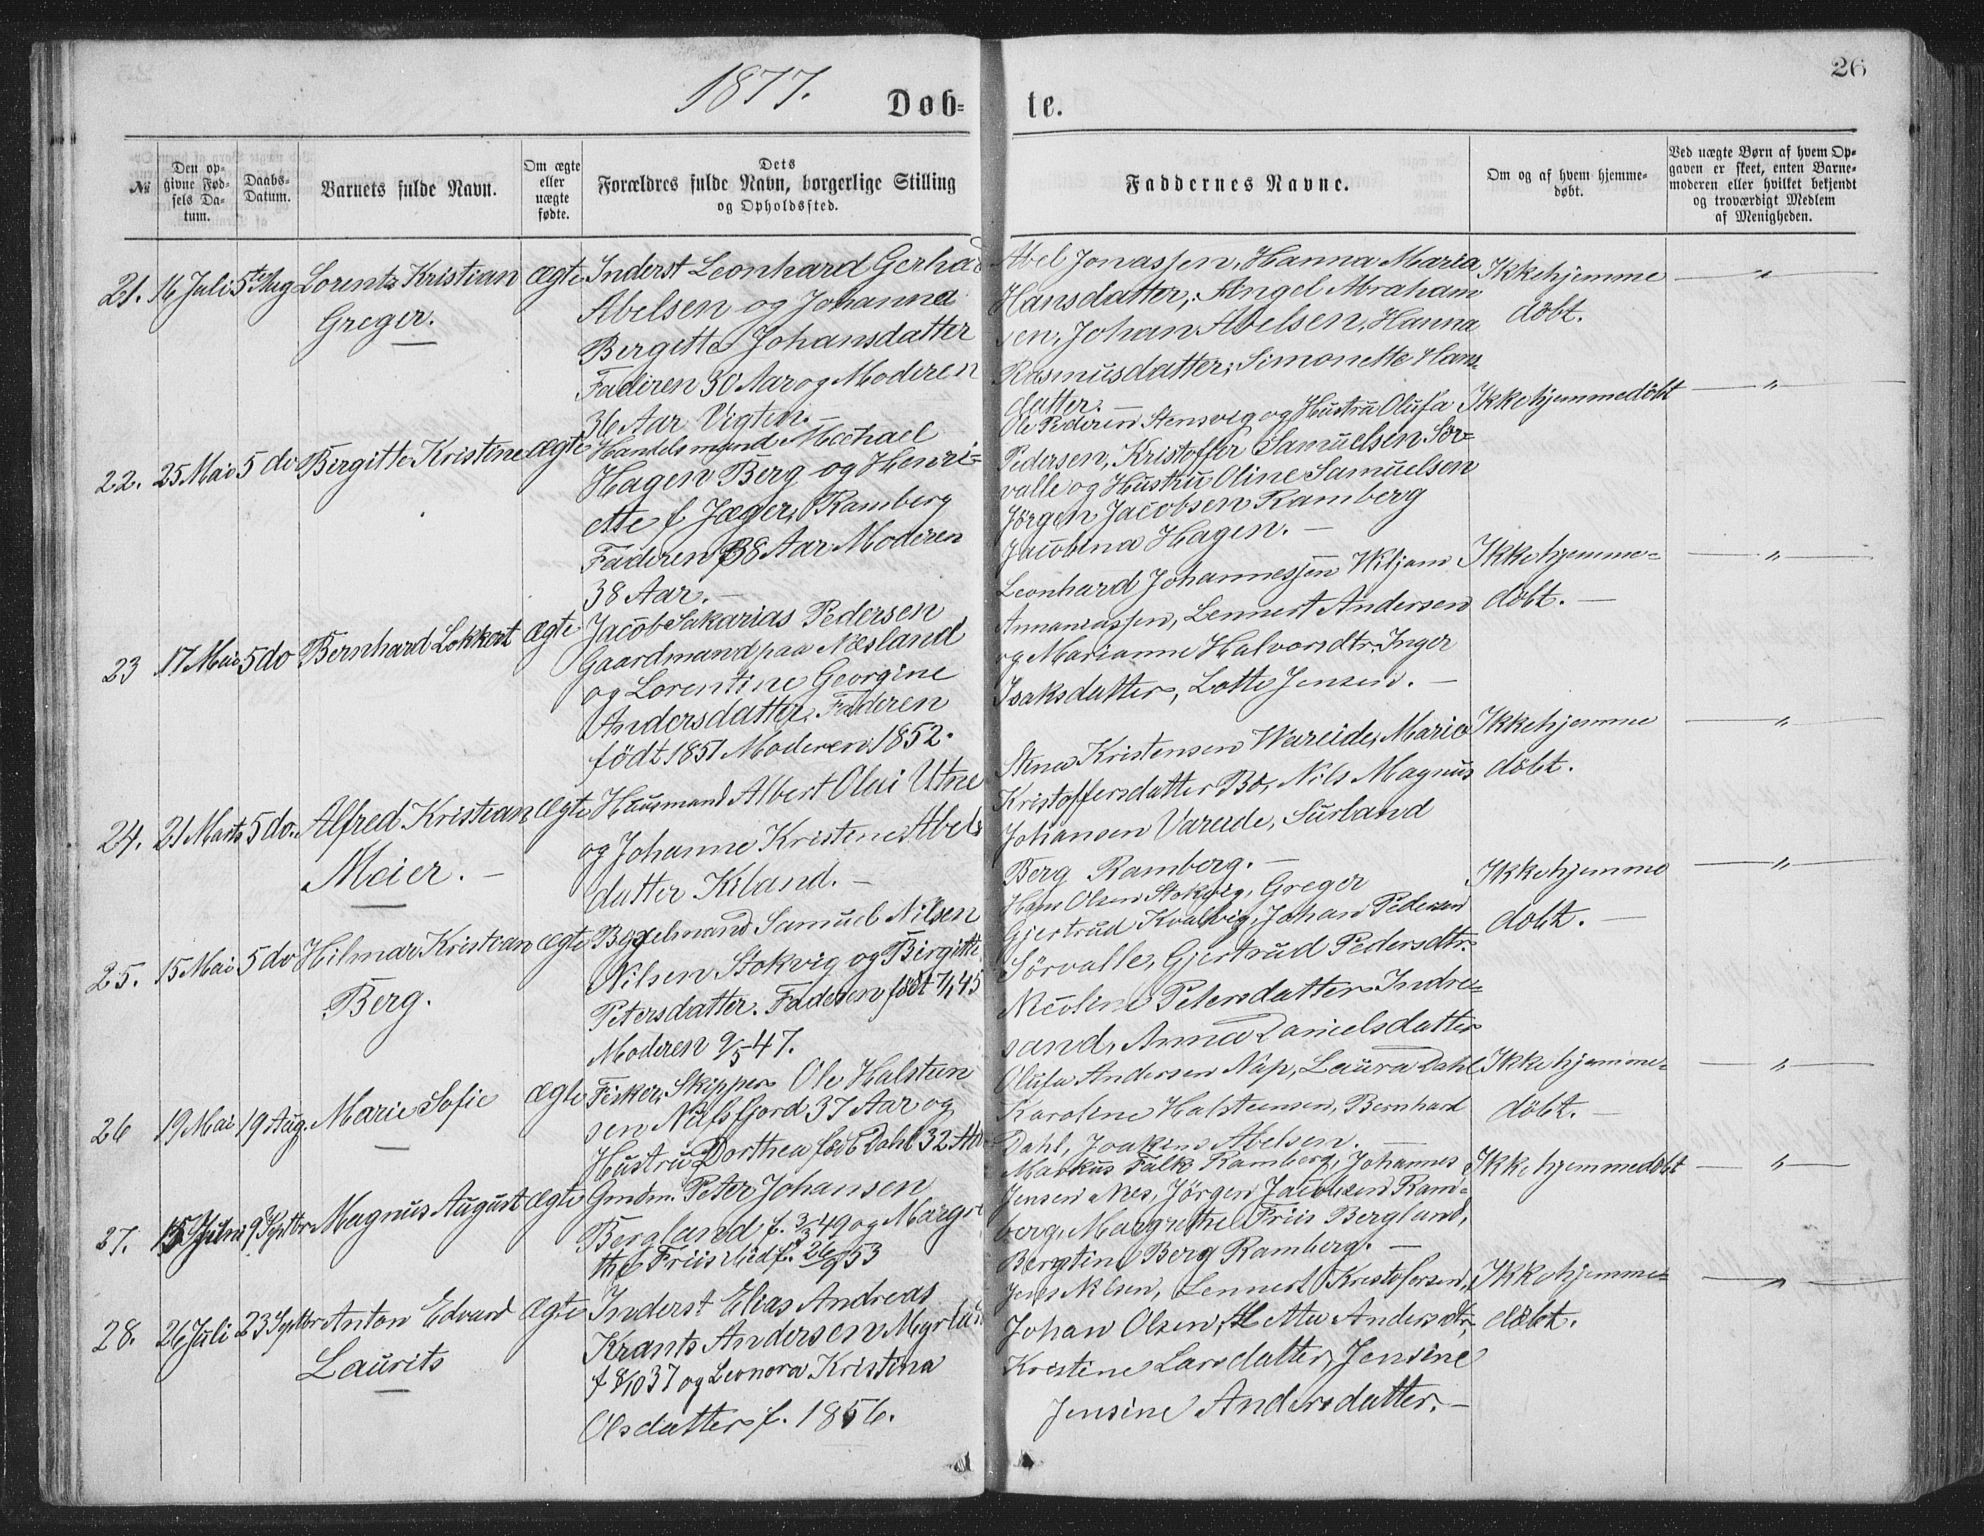 1877.
26
Döb-
te.
№
Den op-
givne Fød-
sels Da-
tum.
Daabs-
Datum.
Barnets fulde Navn.
Om ægte
eller
uægte
fødte.
Dets
Forældres fulde Navn, borgerlige Stilling
og Opholdssted.
Faddernes Navne.
Om og af hvem hjemme-
døbt.
Ved uægte Børn af hvem Op-
gaven er skeet, enten Barne-
moderen eller hvilket bekjendt
og troværdigt Medlem
af Menigheden.
21. 16 Juli 5te Aug Lorents Kristian
Greger.
ægte
Inderst Leonhard Gerhard
Abelsen og Johanna
Bergitte Johansdatter
Faderen 30 Aar og Moderen
36 Aar Vigten.
Abel Jonassen, Hanna Maria
Hansdatter, Angel Abraham
sen, Johan Abelsen, Hanna
Rasmusdatter, Simonette Hans-
datter.
Ikke hjemme
döbt.
— " —
22. 25 Mai 5 do Birgitte Kristine ægte
Handelsmand Michael
Hagen Berg og Henri-
ette f Jæger, Ramberg
Faderen 38 Aar Moderen
38 Aar. —
Ole Pedersen Stensvig og Hustru Olufa
Pedersen, Kristoffer Samuelsen Sör-
valle og Hustru Oline Samuelsen
Jörgen Jacobsen Ramberg
Jacobina Hagen. —
Ikke hjemmedöbt
— " —
23 17 Mai 5 do Bernhard Lokkert ægte
Jacob Sakarias Pedersen
Gaardmand paa Næsland
og Lorentine Georgine
Andersdatter, Faderen
født 1851 Moderen 1852.
Leonhard Johannessen Wiljam
Annaniassen, Lennert Andersen
og Marianne Halvorsdtr. Inger
Isaksdatter, Lotte Jensen. —
Ikke hjemme-
döbt. —
— " —
24. 21 Marts 5 do. Alfred Kristian
Meier. —
ægte
Husmand Albert Olai Utne
og Johanne Kristine Abels
datter Kiland. —
Stena Kristensen Wareide, Maria
Kristoffersdatter Bö, Nils Magnus
Johansen Vareide, Surland
Berg Ramberg. —
Ikke hjemme
döbt.
— " —
25. 15 Mai 5 do Hilmar Kristian
Berg.
ægte
Bygselmand Samuel Nilsen
Nilsen Stokvig og Birgitte
Petersdatter. Faderen født 7/1 45
Moderen 9/5 47.
Hans Olsen Stokvig, Greger
Gjertrud Kvalvig, Johan Pedersen
Sörvalle, Gjertrud Pedersdtr.
Nicoline Petersdatter Indre-
sand, Anna Danielsdatter
Ikke hjemme
döbt. —
— " —
26 19 Mai 19 Aug. Marie Sofie
ægte
Fisker, Skipper Ole Halsteen
sen Nufsfjord 37 Aar og
Hustru Dorthea född Dahl 32 Aar
Olufa Andersen Nap, Laura Dahl
Karoline Halsteensen, Bernhard
Dahl, Joakim Abelsen. —
Ikke hjemme-
döbt. —
— " —
27. 15 Juni 9 Septbr Magnus August ægte
Gmdm. Peter Johansen
Bergland f. 3/3 49 og Margre
the Friis Lied f. 26/9 53
Markus Falk Ramberg, Johannes
Jensen Nes, Jörgen Jacobsen Ram-
berg, Margrethe Friis Bergland,
Bergtine Berg Ramberg. —
Ikke hjemmedöbt
— " —
28. 26 Juli 23 Septbr Anton Edvard
Laurits
ægte
Inderst Elias Andreas
Krants Andersen Myrland
f 8/10 37 og Leonora Kristina
Olsdatter f. 1856.
Jens Nilsen, Lennert Kristofersen,
Johan Olsen, Mette Andersdtr,
Kristine Larsdatter, Jensine
Jensine Andersdatter. —
Ikke hjemme-
döbt.
— " —